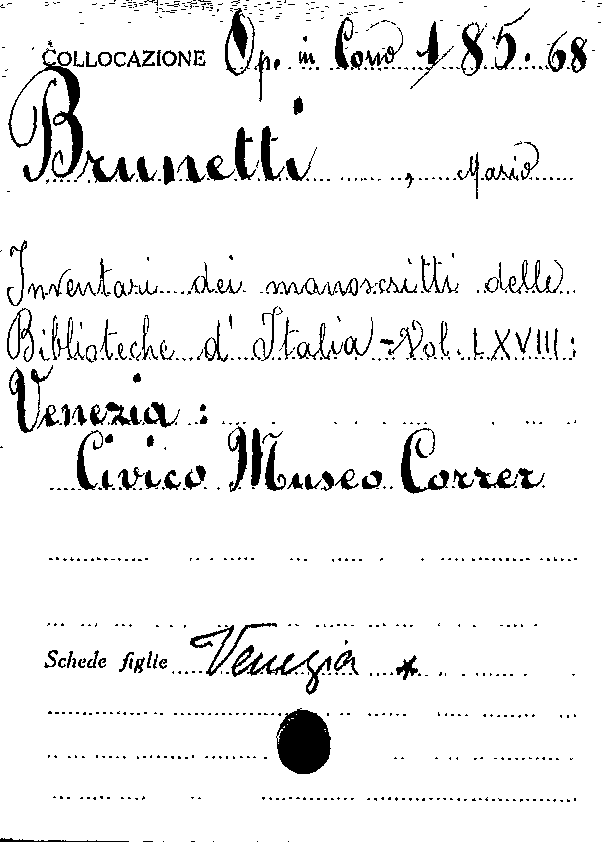 COLLOCAZIONE Op. in Cons 1/85.68
Brunetti, Mario
Inventari dei manoscritti delle
Biblioteche d'Italia - Vol. LXVIII:
Venezia:
Civico Museo Correr
Schede figlie Venezia *